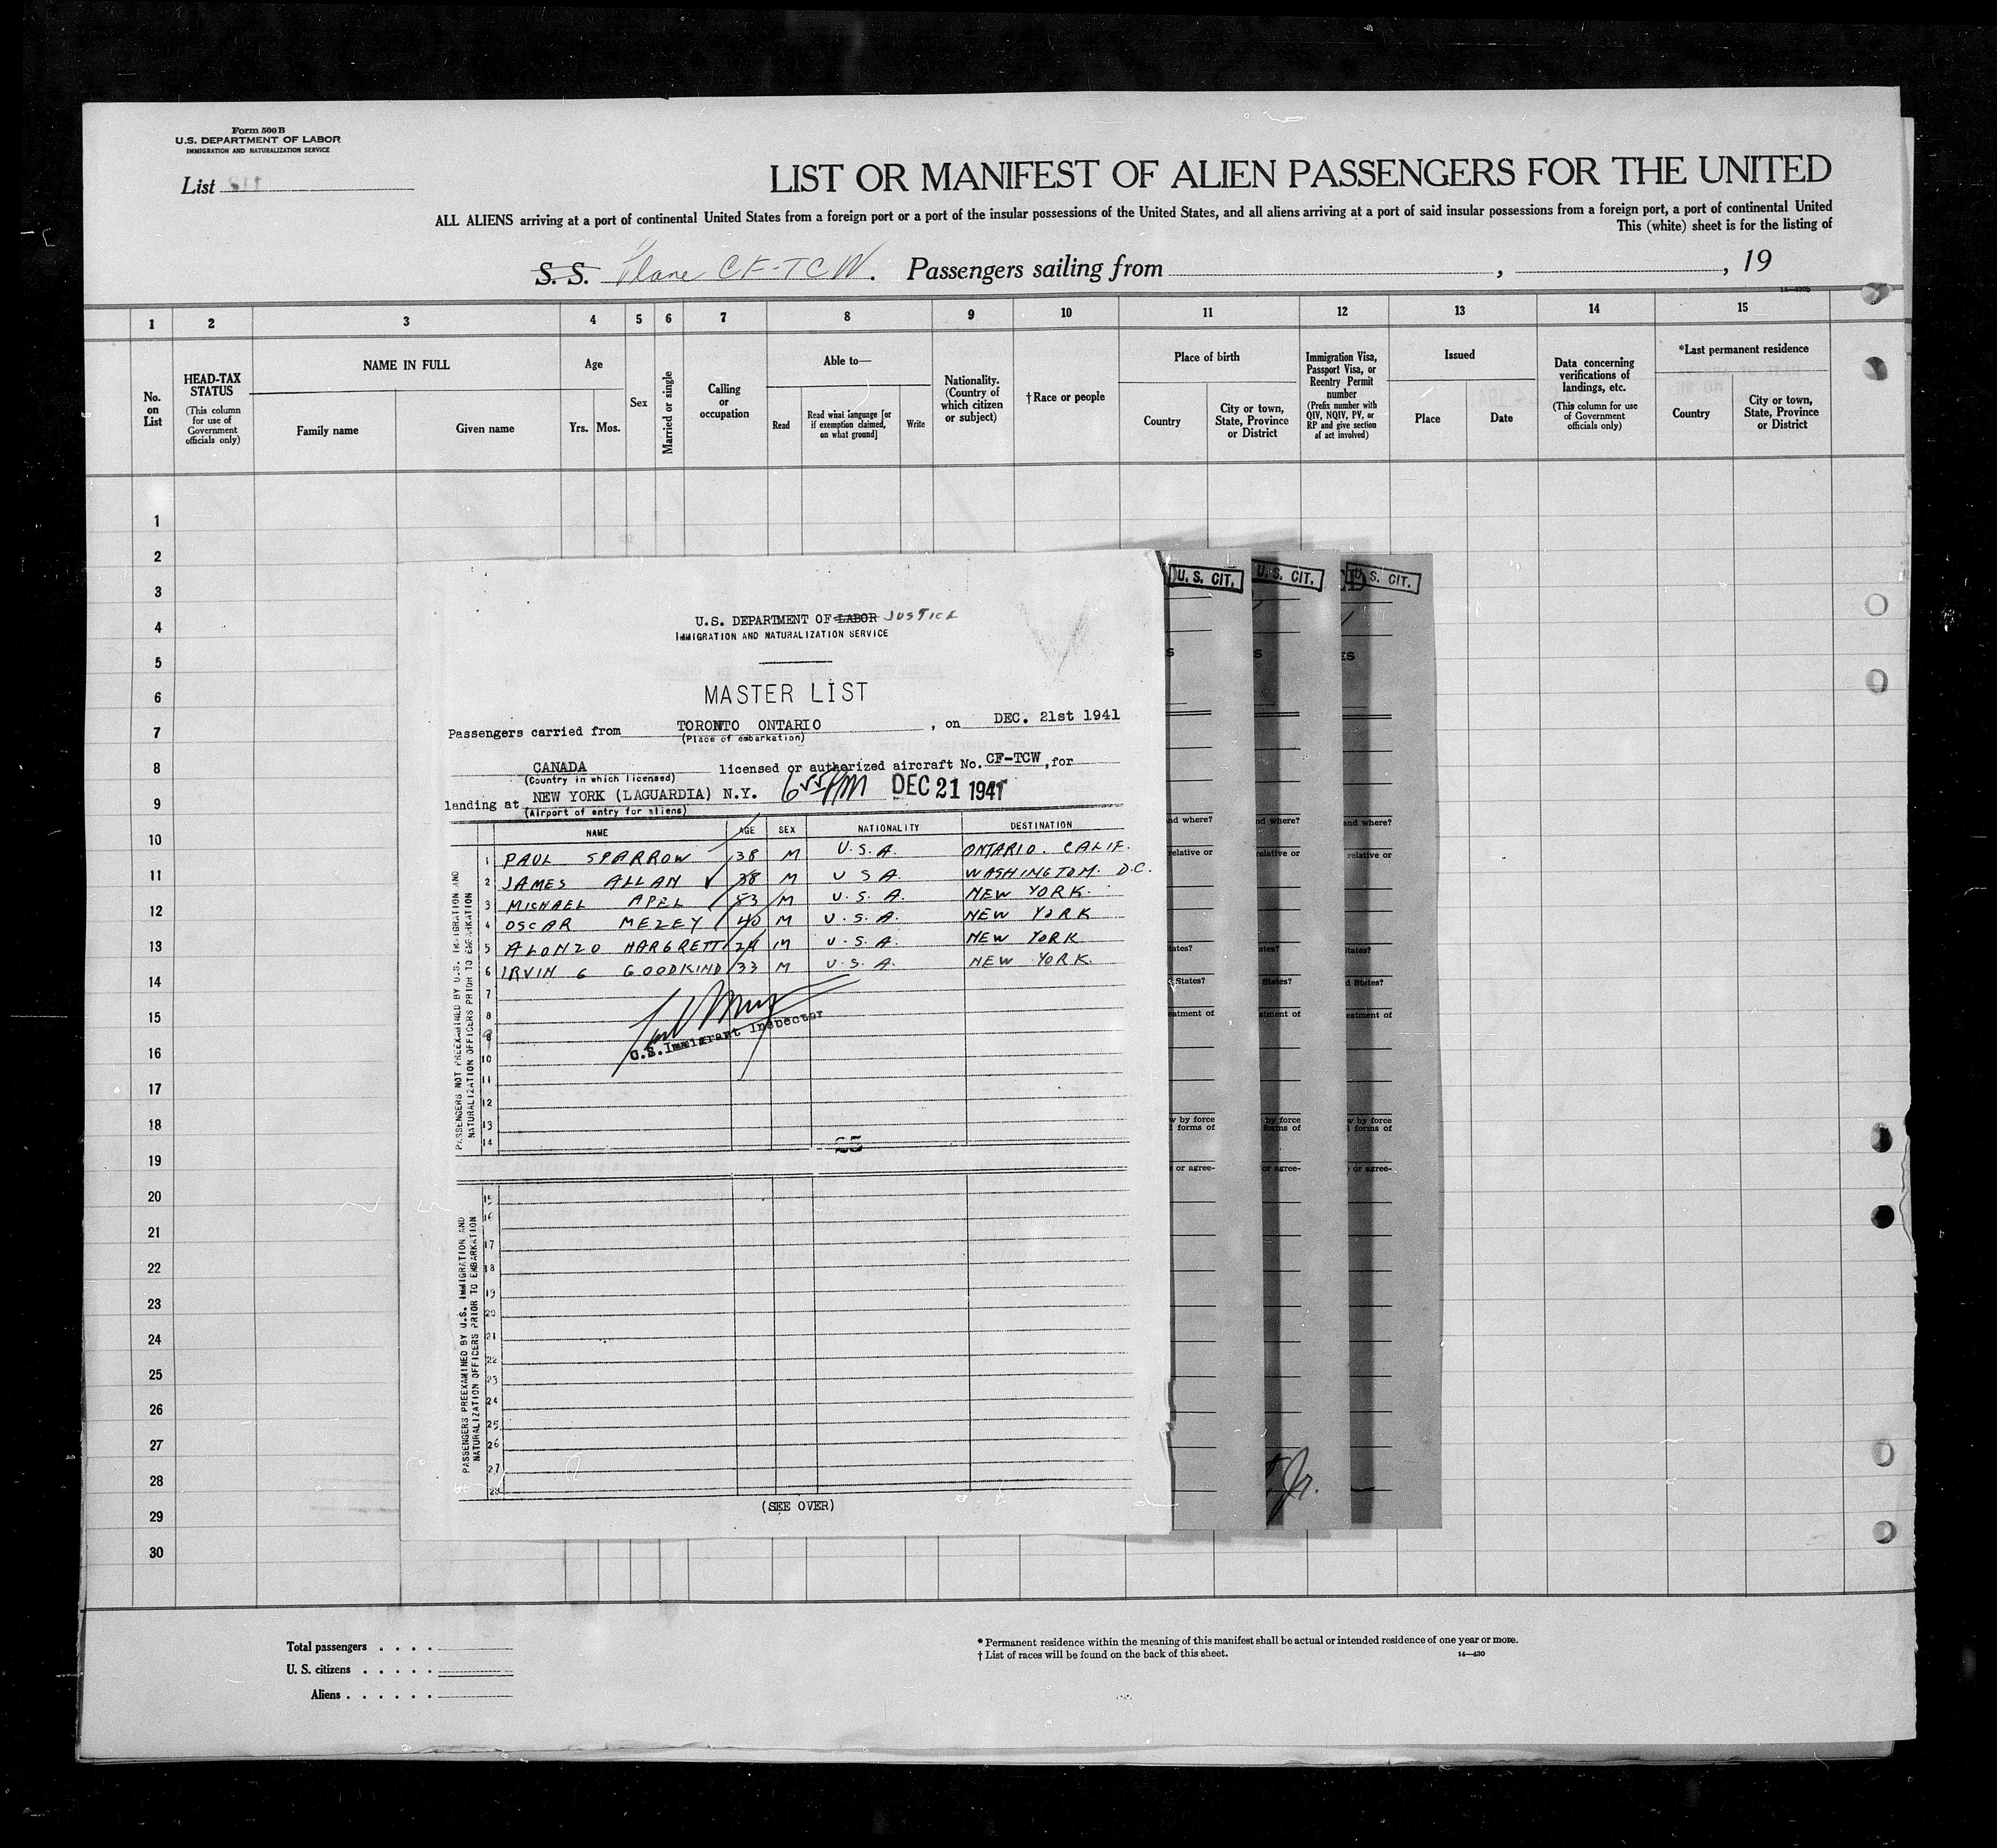 Form 500 B
U.S. DEPARTMENT OF LABOR
IMMIGRATION AND NATURALIZATION SERVICE
List
LIST OR MANIFEST OF ALIEN PASSENGERS FOR THE UNITED
ALL ALIENS arriving at a port of continental United States from a foreign port or a port of the insular possessions of the United States, and all aliens arriving at a port of said insular possessions from a foreign port, a port of continental United
This (white) sheet is for the listing of
S. S. Plane CF-TCW. Passengers sailing from , , 19
1 2 3 4 5 6 7 8 9 10 11 12 13 14 15
No. on List
HEAD-TAX STATUS
(This column for use of Government officials only)
NAME IN FULL
Family name
Given name
Age
Yrs. Mos.
Sex
Married or single
Calling or occupation
Able to—
Read
Read what language [or if exemption claimed, on what ground]
Write
Nationality. (Country of which citizen or subject)
† Race or people
Place of birth
Country
City or town, State, Province or District
Immigration Visa, Passport Visa, or Reentry Permit number
(Prefix number with QIV, NQIV, PV, or RP and give section of act involved)
Issued
Place
Date
Data concerning verifications of landings, etc.
(This column for use of Government officials only)
*Last permanent residence
Country
City or town, State, Province or District
1
2
3
4
5
6
7
8
9
10
11
12
13
14
15
16
17
18
19
20
21
22
23
24
25
26
27
28
29
30
U.S. DEPARTMENT OF LABOR JUSTICE
IMMIGRATION AND NATURALIZATION SERVICE
MASTER LIST
Passengers carried from TORONTO ONTARIO , on DEC. 21st 1941
(Place of embarkation)
CANADA licensed or authorized aircraft No. CF-TCW, for
(Country in which licensed)
landing at NEW YORK (LAGUARDIA) N.Y. 6 55 PM DEC 21 1941
(Airport of entry for aliens)
NAME AGE SEX NATIONALITY DESTINATION
1 PAUL SPARROW 38 M U.S.A. ONTARIO. CALIF.
2 JAMES ALLAN 38 M U S A. WASHINGTON. D.C.
3 MICHAEL APEL 53 M U.S.A. NEW YORK.
4 OSCAR MEZEY 40 M U.S.A. NEW YORK
5 ALONZO HARGRETT 24 M U.S.A. NEW YORK
6 IRVIN G GOODKIND 33 M U.S.A. NEW YORK.
7
8
9
10
11
12
13
14
U.S. Immigrant Inspector
PASSENGERS NOT PREEXAMINED BY U.S. IMMIGRATION AND NATURALIZATION OFFICERS PRIOR TO EMBARKATION
15
16
17
18
19
20
21
22
23
24
25
26
27
28
PASSENGERS PREEXAMINED BY U.S. IMMIGRATION AND NATURALIZATION OFFICERS PRIOR TO EMBARKATION
(SEE OVER)
U. S. CIT. U. S. CIT. U. S. CIT.
S S ES
nd where? and where? and where?
relative or relative or relative or
tates? ates? itates?
States? States? d States?
eatment of atment of eatment of
w by force by force w by force
l forms of forms of l forms of
or agree- or agree- or agree-
Jr.
Total passengers . . . .
U. S. citizens . . . . .
Aliens . . . . . .
* Permanent residence within the meaning of this manifest shall be actual or intended residence of one year or more.
† List of races will be found on the back of this sheet.
14—430